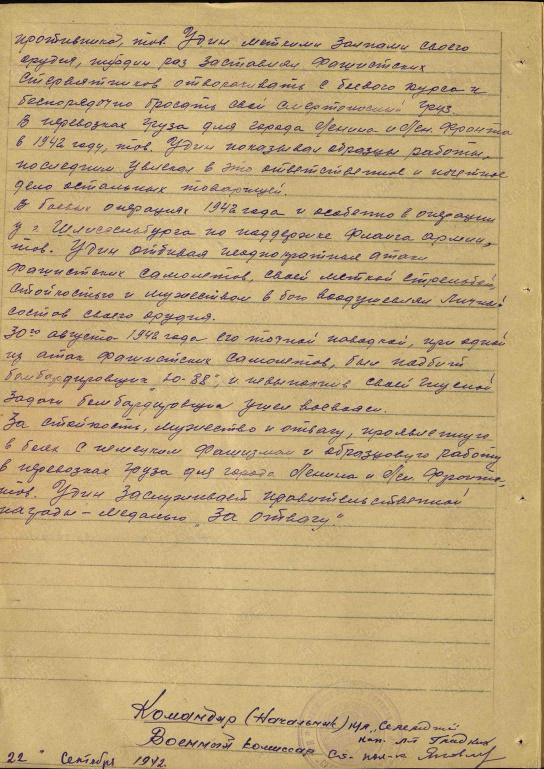 противника, тов. Удин меткими залпами своего
орудия, не один раз заставлял фашистских
стервятников отворачивать с боевого курса и
беспорядочно бросать свой смертоносный груз
В перевозках груза для города Ленина и Лен. фронта
в 1942 году, тов. Удин показывал образцы работы,
последним увлекал в это ответственное и почетное
дело остальных товарищей.
В боевых операциях 1942 года и особенно в операции
у г. Шлиссельбурга по поддержке фланга армии,
тов. Удин отбивая неоднократные атаки
фашистских самолетов, своей меткой стрельбой,
стойкостью и мужеством в бою воодушевлял личный
состав своего орудия.
30го августа 1942 года его точной наводкой, при одной
из атак фашистских самолетов, был подбит
бомбардировщик "Ю-88", и невыполнив своей гнусной
задачи бомбардировщик ушел восвояси.
За стойкость, мужество и отвагу, проявленную
в боях с немецким фашизмом и образцовую работу
в перевозках груза для города Ленина и Лен. Фронта-
тов. Удин заслуживает правительственной
награды - медалью "За отвагу".
Командир (Начальник) к/л "Селемджа"
кап. л-т
Военный комиссар ст. пол-к
22 " Сентября 1942.